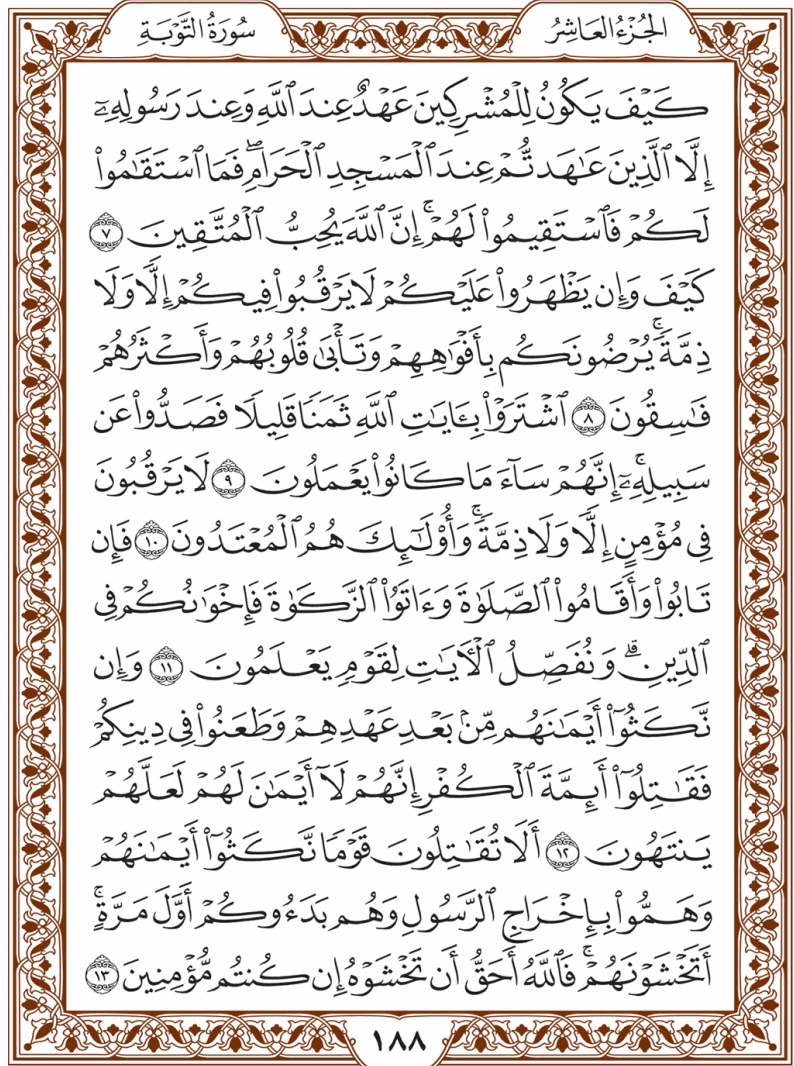 الجُزْءُ العَاشِرُ
سُورَةُ التَّوْبَةِ
كَيْفَ يَكُونُ لِلْمُشْرِكِينَ عَهْدٌ عِندَ ٱللَّهِ وَعِندَ رَسُولِهِۦٓ
إِلَّا ٱلَّذِينَ عَٰهَدتُّمْ عِندَ ٱلْمَسْجِدِ ٱلْحَرَامِ ۖ فَمَا ٱسْتَقَٰمُوا۟
لَكُمْ فَٱسْتَقِيمُوا۟ لَهُمْ ۚ إِنَّ ٱللَّهَ يُحِبُّ ٱلْمُتَّقِينَ ٧
كَيْفَ وَإِن يَظْهَرُوا۟ عَلَيْكُمْ لَا يَرْقُبُوا۟ فِيكُمْ إِلًّا وَلَا
ذِمَّةً ۚ يُرْضُونَكُم بِأَفْوَٰهِهِمْ وَتَأْبَىٰ قُلُوبُهُمْ وَأَكْثَرُهُمْ
فَٰسِقُونَ ٨ ٱشْتَرَوْا۟ بِـَٔايَٰتِ ٱللَّهِ ثَمَنًا قَلِيلًا فَصَدُّوا۟ عَن
سَبِيلِهِۦٓ ۚ إِنَّهُمْ سَآءَ مَا كَانُوا۟ يَعْمَلُونَ ٩ لَا يَرْقُبُونَ
فِى مُؤْمِنٍ إِلًّا وَلَا ذِمَّةً ۚ وَأُو۟لَٰٓئِكَ هُمُ ٱلْمُعْتَدُونَ ١٠ فَإِن
تَابُوا۟ وَأَقَامُوا۟ ٱلصَّلَوٰةَ وَءَاتَوُا۟ ٱلزَّكَوٰةَ فَإِخْوَٰنُكُمْ فِى
ٱلدِّينِ ۗ وَنُفَصِّلُ ٱلْـَٔايَٰتِ لِقَوْمٍ يَعْلَمُونَ ١١ وَإِن
نَّكَثُوٓا۟ أَيْمَٰنَهُم مِّنۢ بَعْدِ عَهْدِهِمْ وَطَعَنُوا۟ فِى دِينِكُمْ
فَقَٰتِلُوٓا۟ أَئِمَّةَ ٱلْكُفْرِ إِنَّهُمْ لَآ أَيْمَٰنَ لَهُمْ لَعَلَّهُمْ
يَنتَهُونَ ١٢ أَلَا تُقَٰتِلُونَ قَوْمًا نَّكَثُوٓا۟ أَيْمَٰنَهُمْ
وَهَمُّوا۟ بِإِخْرَاجِ ٱلرَّسُولِ وَهُم بَدَءُوكُمْ أَوَّلَ مَرَّةٍ ۚ
أَتَخْشَوْنَهُمْ ۚ فَٱللَّهُ أَحَقُّ أَن تَخْشَوْهُ إِن كُنتُم مُّؤْمِنِينَ ١٣
١٨٨